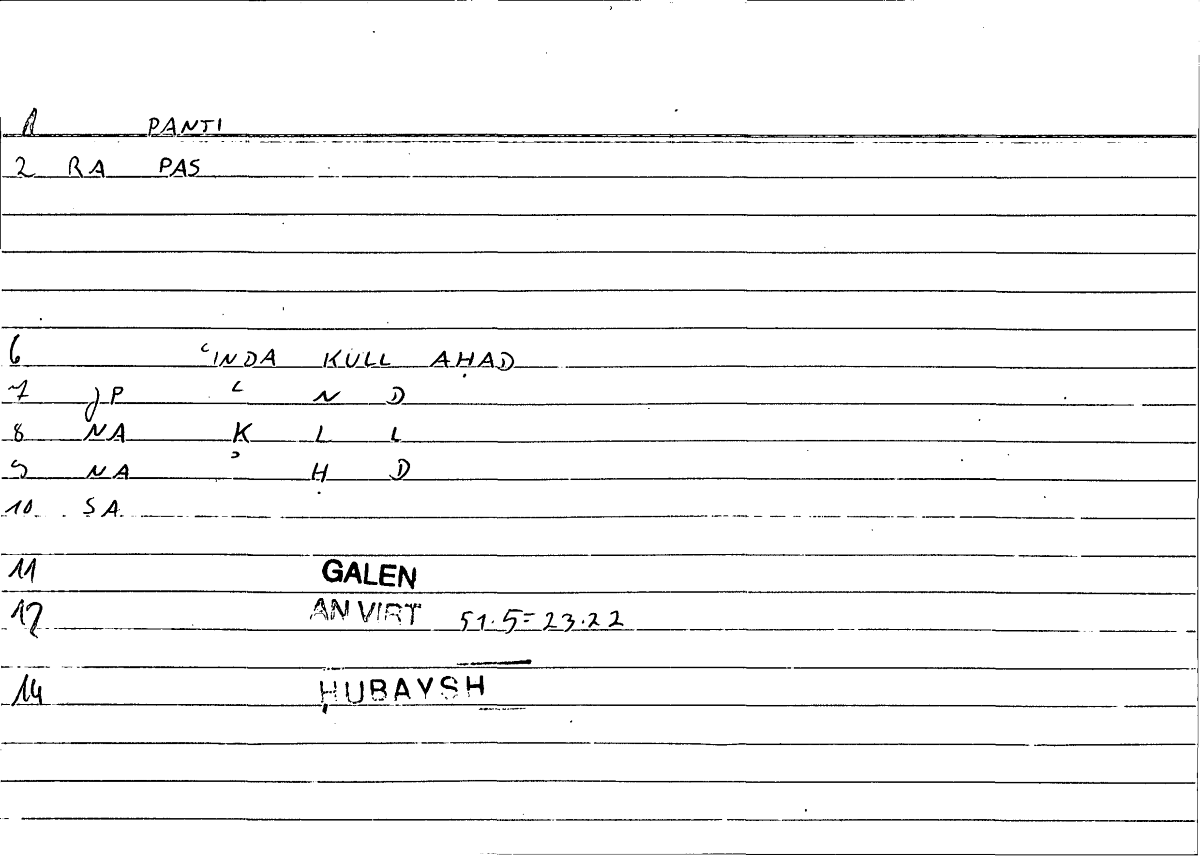 1 PANTI
2 RA PAS
6 ʿINDA KULL AḤAD
7 JP ʿ N D
8 NA K L L
9 NA ʾ Ḥ D
10 SA
11 GALEN
12 AN VIRT 51.5=23.22
14 ḤUBAYSH